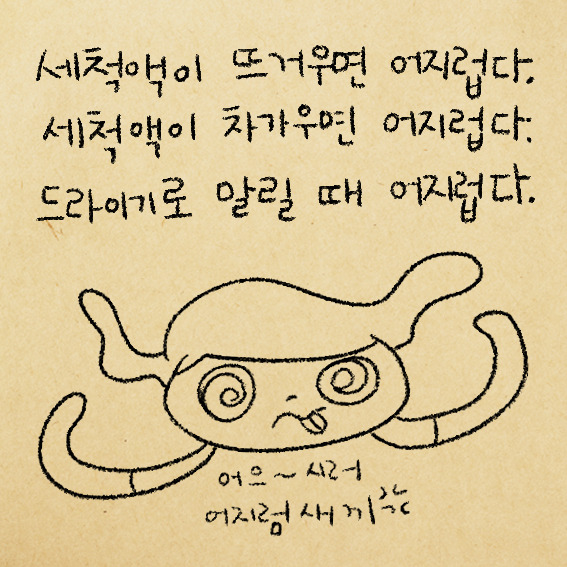 세척액이 뜨거우면 어지럽다.
세척액이 차가우면 어지럽다.
드라이기로 말릴 때 어지럽다.
어으~ 시러
어지럼 새끼